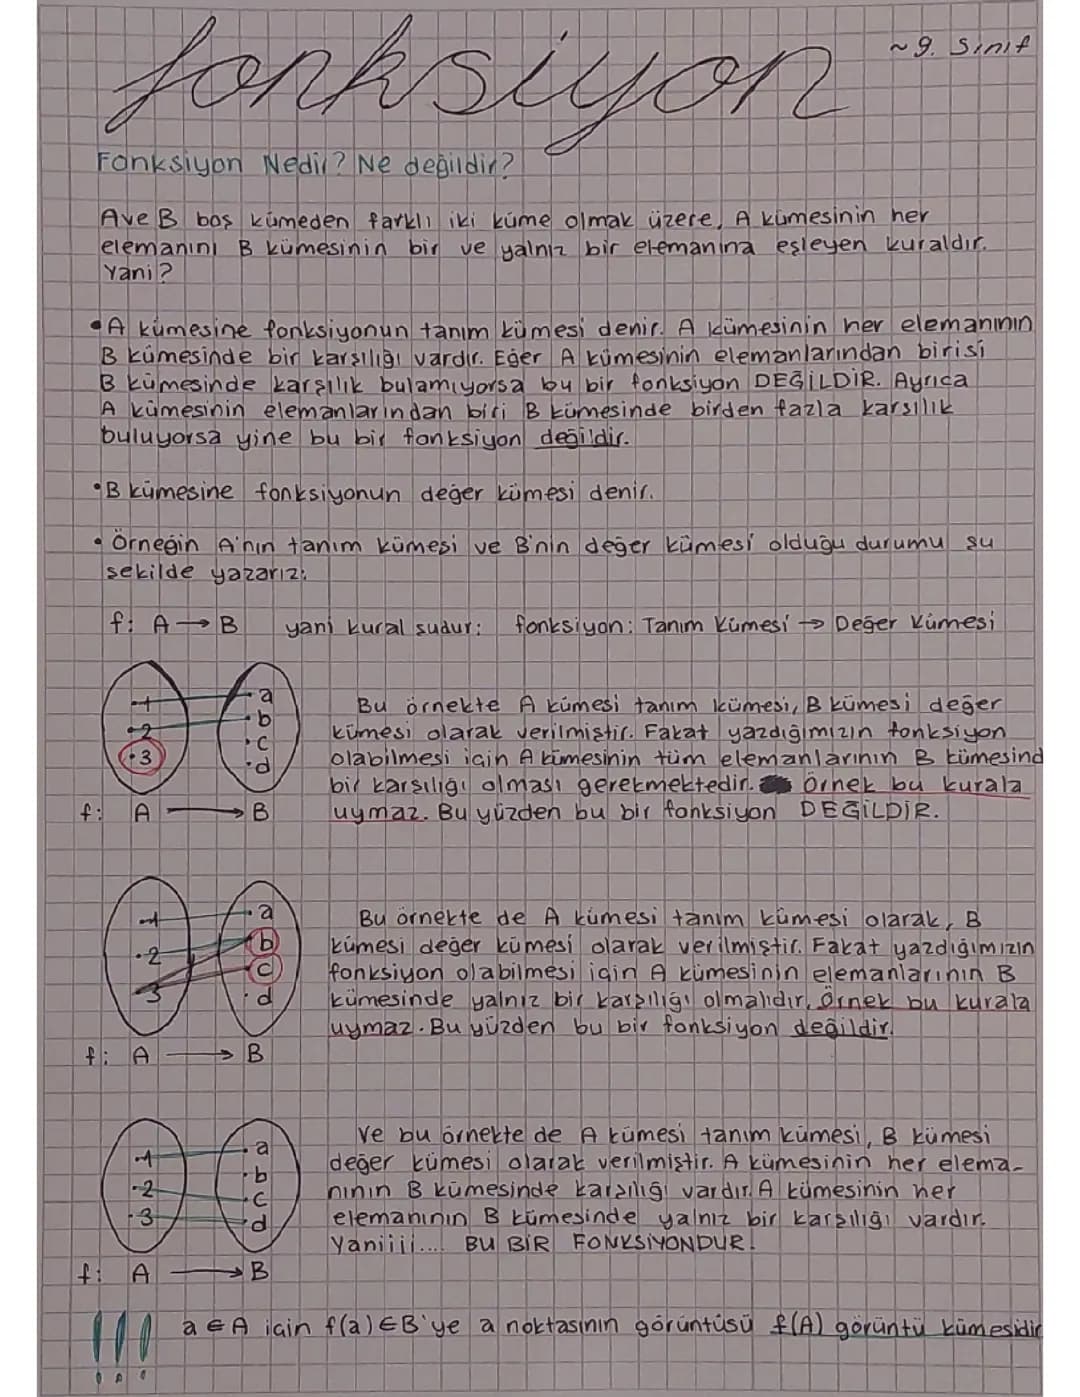 fonksiyon
~9. Sınıf
Fonksiyon Nedir? Ne değildir?
A ve B boş kümeden farklı iki küme olmak üzere, A kümesinin her
elemanını B kümesinin bir ve yalnız bir elemanına eşleyen kuraldır.
Yani?
• A kümesine fonksiyonun tanım kümesi denir. A kümesinin her elemanının
B kümesinde bir karşılığı vardır. Eğer A kümesinin elemanlarından birisi
B kümesinde karşılık bulamıyorsa bu bir fonksiyon DEĞİLDİR. Ayrıca
A kümesinin elemanlarından biri B kümesinde birden fazla karşılık
buluyorsa yine bu bir fonksiyon değildir.
• B kümesine fonksiyonun değer kümesi denir.
• Örneğin A'nın tanım kümesi ve B'nin değer kümesi olduğu durumu şu
şekilde yazarız:
f: A → B yani kural şudur: fonksiyon: Tanım Kümesi → Değer Kümesi
1 a
2 b
3 c
d
f: A → B
Bu örnekte A kümesi tanım kümesi, B kümesi değer
kümesi olarak verilmiştir. Fakat yazdığımızın fonksiyon
olabilmesi için A kümesinin tüm elemanlarının B kümesind
bir karşılığı olması gerekmektedir. Örnek bu kurala
uymaz. Bu yüzden bu bir fonksiyon DEĞİLDİR.
1 a
2 b
3 c
d
f: A → B
Bu örnekte de A kümesi tanım kümesi olarak, B
kümesi değer kümesi olarak verilmiştir. Fakat yazdığımızın
fonksiyon olabilmesi için A kümesinin elemanlarının B
kümesinde yalnız bir karşılığı olmalıdır, örnek bu kurala
uymaz. Bu yüzden bu bir fonksiyon değildir.
1 a
2 b
3 c
d
f: A → B
Ve bu örnekte de A kümesi tanım kümesi, B kümesi
değer kümesi olarak verilmiştir. A kümesinin her elema-
nının B kümesinde karşılığı vardır. A kümesinin her
elemanının B kümesinde yalnız bir karşılığı vardır.
Yaniiii.... BU BİR FONKSİYONDUR!
!!! a ∈ A için f(a) ∈ B'ye a noktasının görüntüsü f(A) görüntü kümesidir